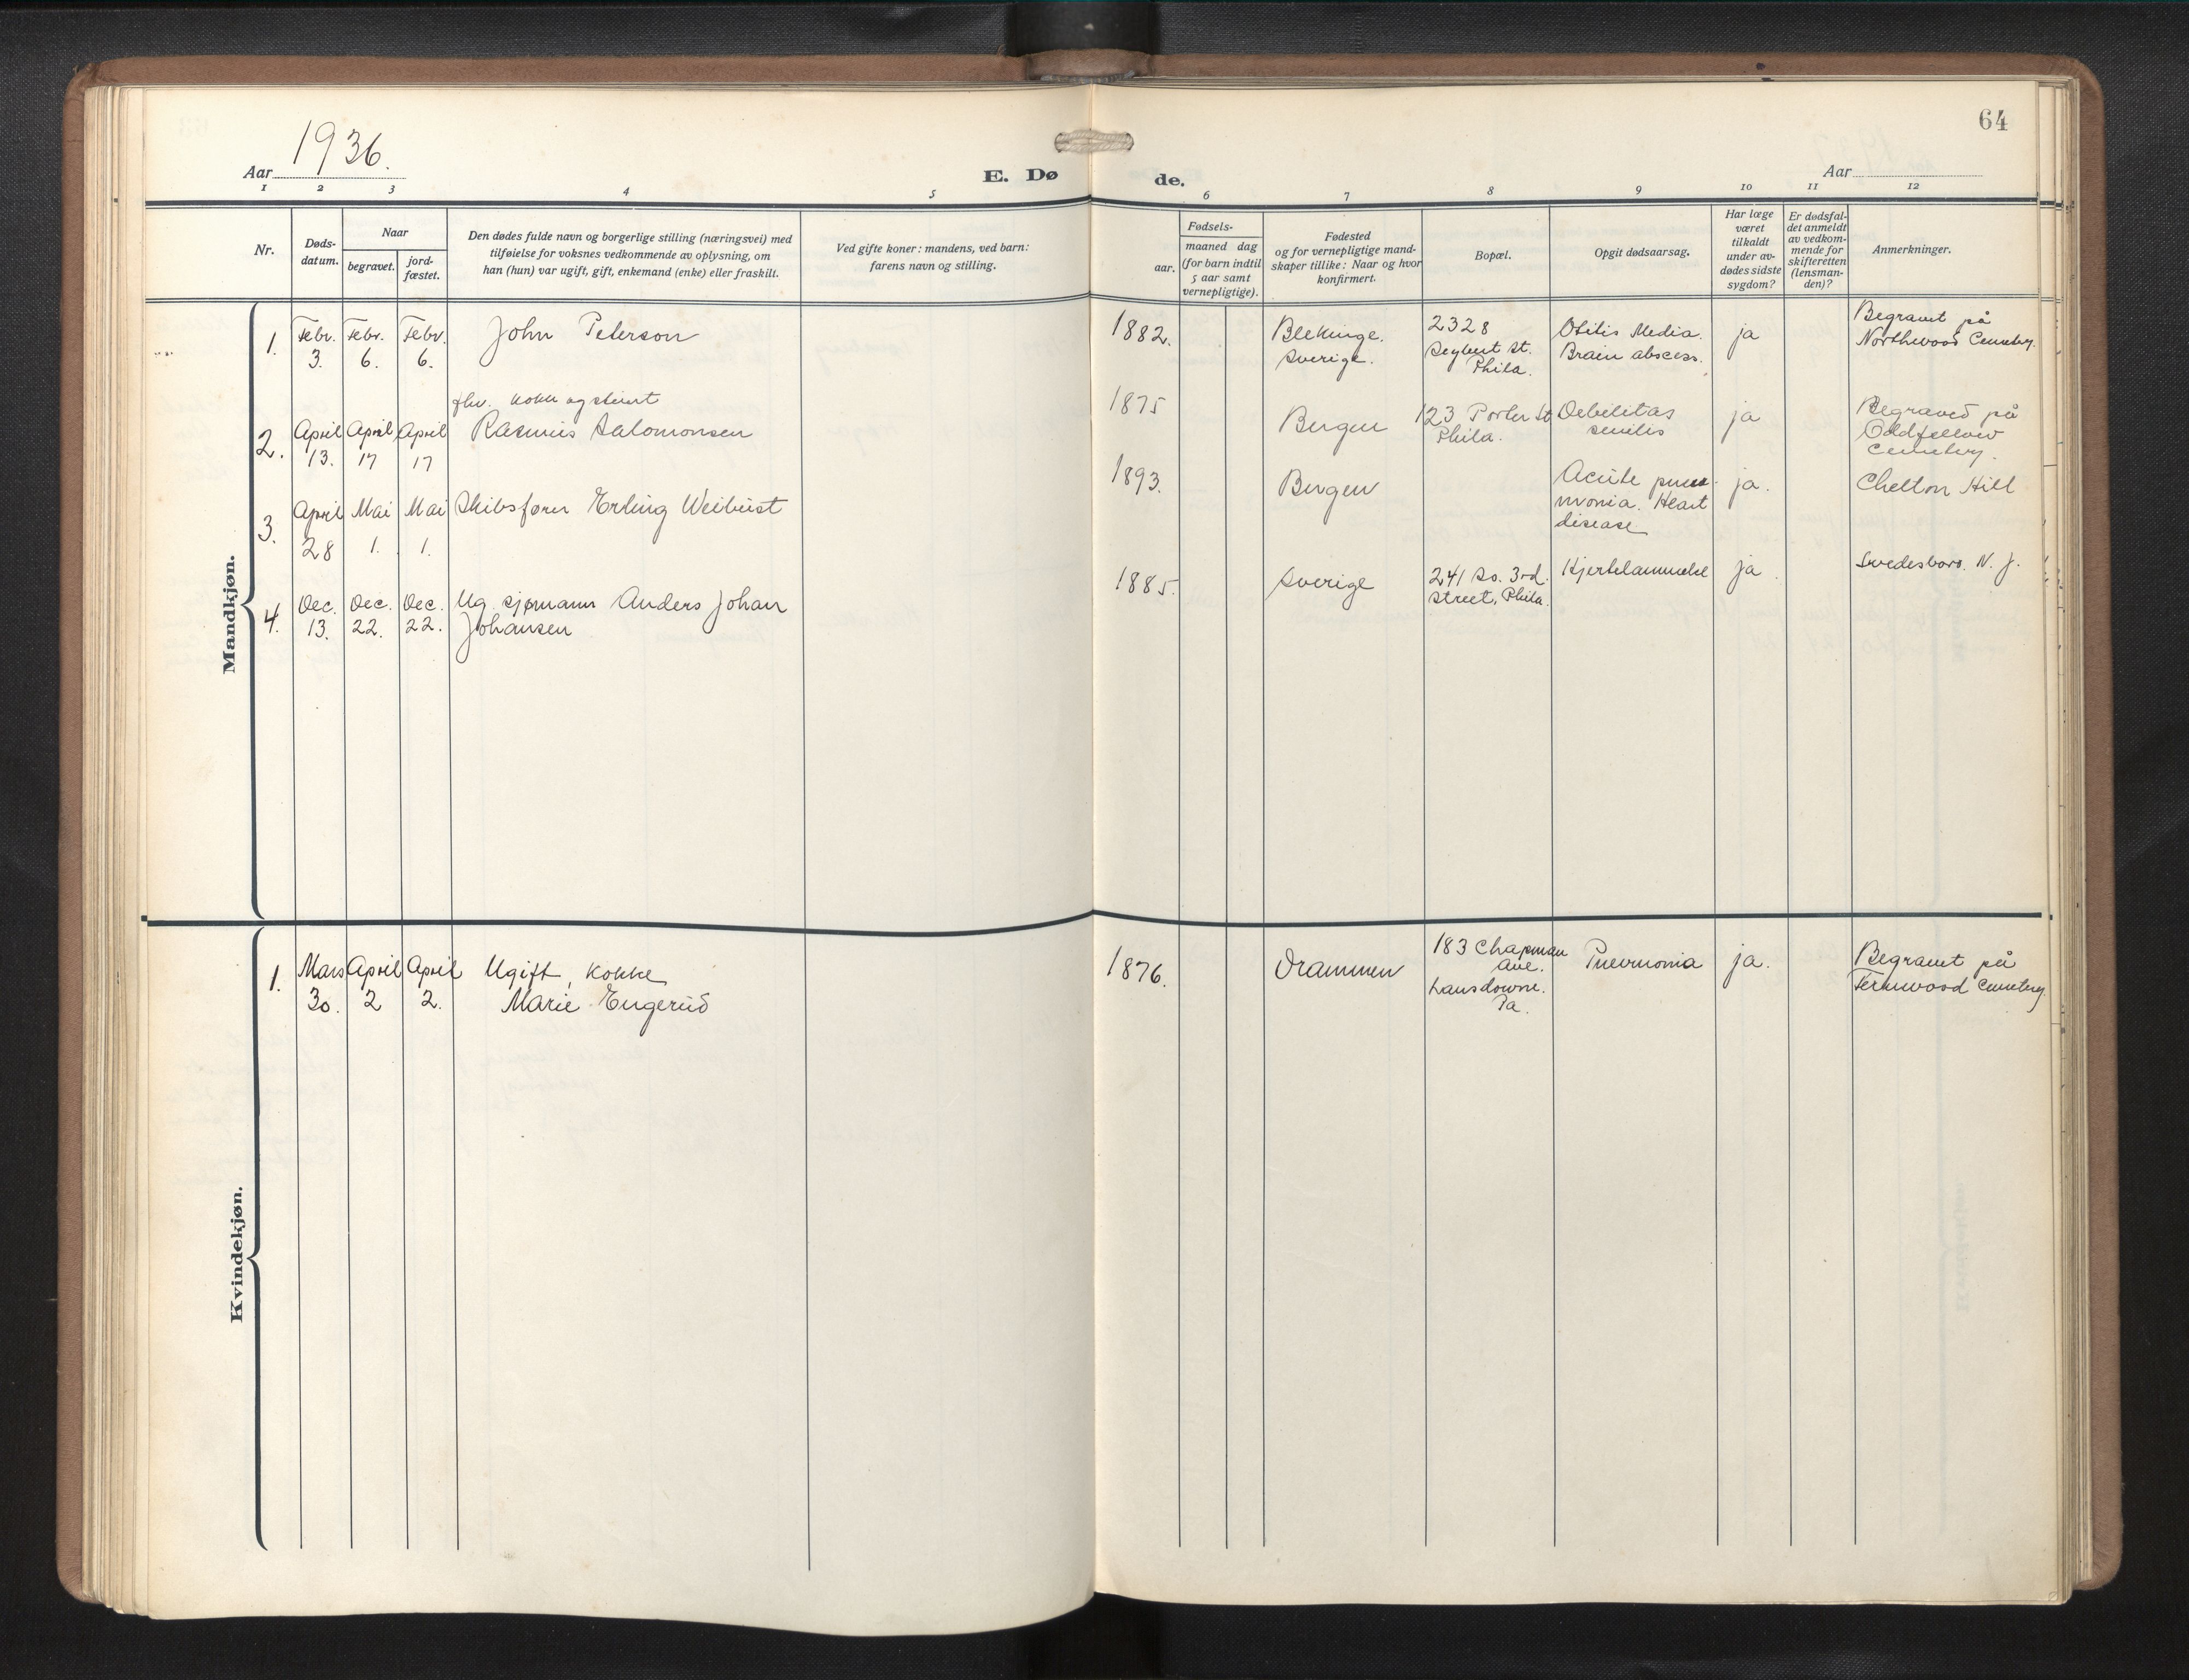 64
1936.
Aar
Aar
E. Dø de.
1 2 3 4 5 6 7 8 9 10 11 12
Nr.
Døds-
datum.
Naar
begravet.
jord-
fæstet.
Den dødes fulde navn og borgerlige stilling (næringsvei) med
tilføielse for voksnes vedkommende av oplysning, om
han (hun) var ugift, gift, enkemand (enke) eller fraskilt.
Ved gifte koner: mandens, ved barn:
farens navn og stilling.
Fødsels-
aar.
maaned dag
(for barn indtil
5 aar samt
vernepligtige).
Fødested
og for vernepligtige mand-
skaper tillike: Naar og hvor
konfirmert.
Bopæl.
Opgit dødsaarsag.
Har læge
været
tilkaldt
under av-
dødes sidste
sygdom?
Er dødsfal-
det anmeldt
av vedkom-
mende for
skifteretten
(lensman-
den)?
Anmerkninger.
Mandkjøn.
1.
Febr.
3.
Febr.
6.
Febr.
6.
John Peterson
1882.
Blekinge.
Sverige.
2328
Seybert St.
Phila.
Otitis Media.
Brain abscess.
ja
Begravet på
Northwood Cemetery.
2.
April
13.
April
17
April
17
fhv. kokk og stuert
Rasmus Salomonsen
1875
Bergen
123 Porter St
Phila.
Debilitas
senilis
ja
Begraved på
Oddfellow
Cemetery.
3.
April
28
Mai
1.
Mai
1.
Skibsfører Erling Weibust
1893.
Bergen
Acute pneu-
monia. Heart
disease
ja.
Chelton Hill
4.
Dec.
13.
Dec.
22.
Dec.
22.
Ug. sjømann Anders Johan
Johansen
1885.
Sverige
241 So. 3rd.
Street, Phila.
Hjertelammelse
ja
Swedesboro. N. J.
Kvindekjøn.
1.
Mars
30.
April
2
April
2.
Ugift, kokke
Marie Engerud
1876.
Drammen
183 Chapman
Ave.
Lansdowne.
Pa.
Pneumonia
ja.
Begravet på
Fernwood Cemetery.